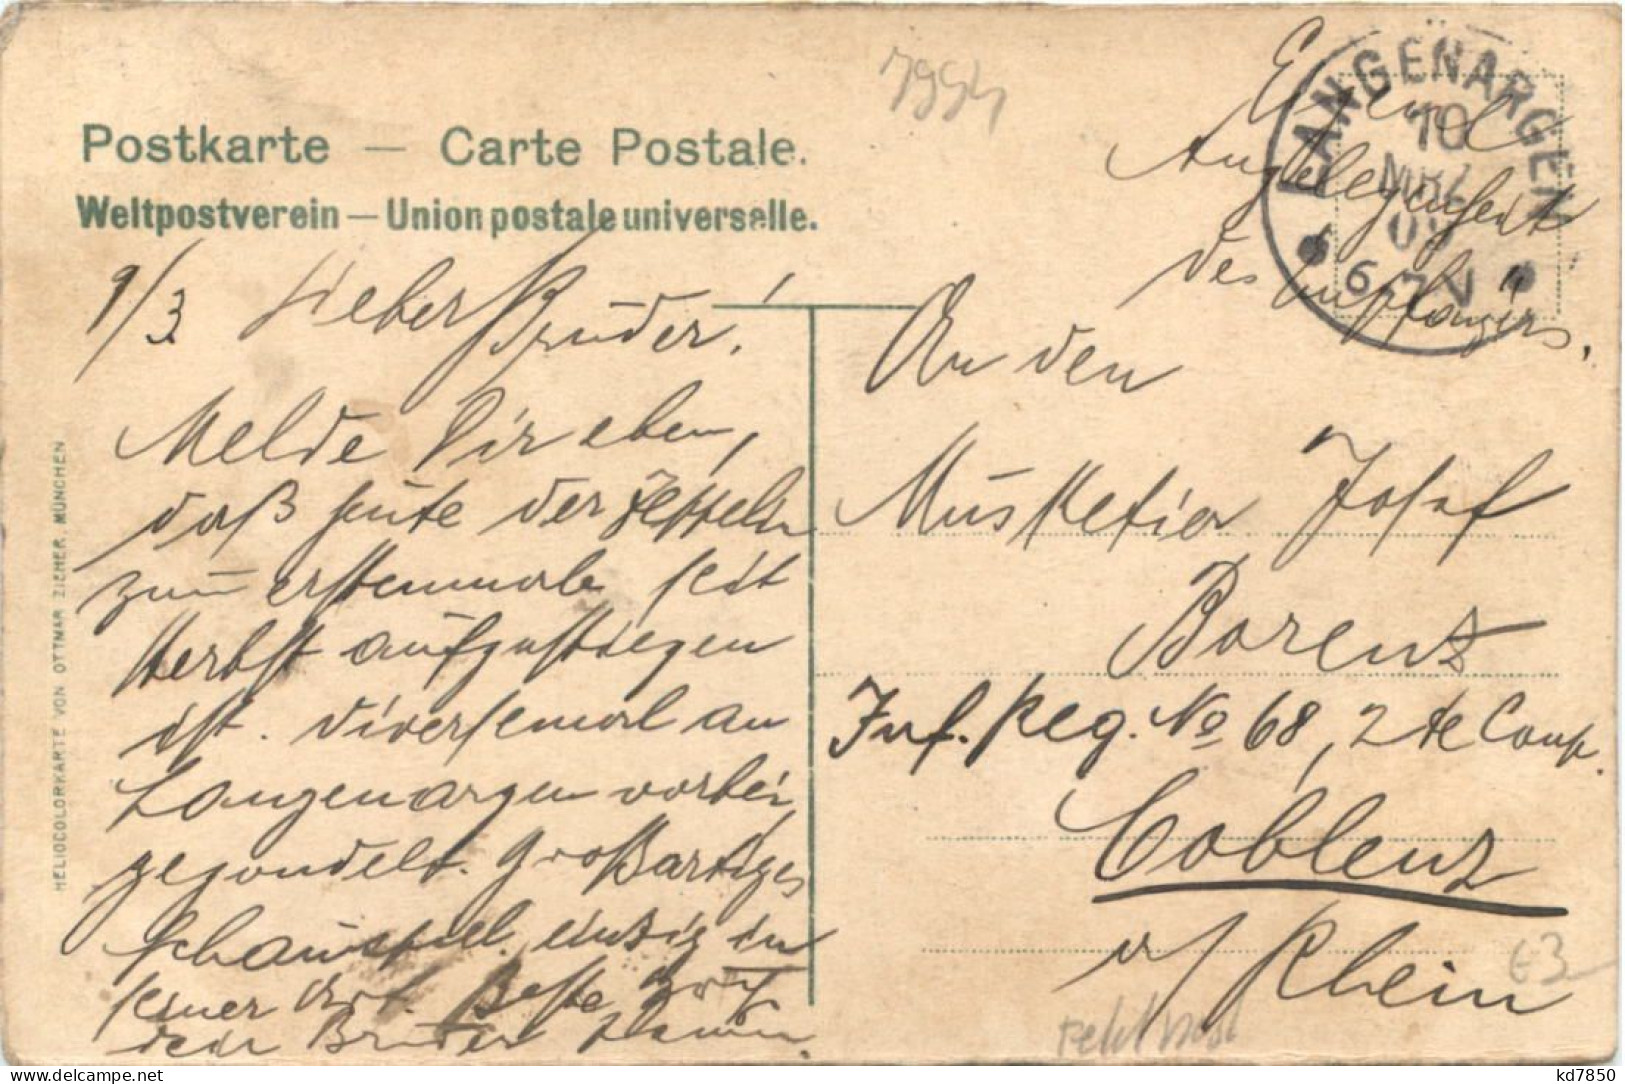 7994
Postkarte — Carte Postale.
Weltpostverein — Union postale universelle.
LANGENARGEN
10
MRZ
09
6-7V
Angelegenheit
des Empfängers.
9/3 Lieber Bruder!
Melde Dir eben,
daß heute der Zeppelin
zum erstenmale seit
Herbst aufgestiegen
ist. diversemal an
Langenargen vorbei
gegondelt. Großartiges
Schauspiel. einzig in
seiner Art. Beste Grüße
dein Bruder
An den
Musketier Josef
Borenz
Inf. Reg. No 68, 2te Comp.
Coblenz
a/Rhein
63
Feldpost
HELIOCOLORKARTE VON OTTMAR ZIEHER, MÜNCHEN
kd7850